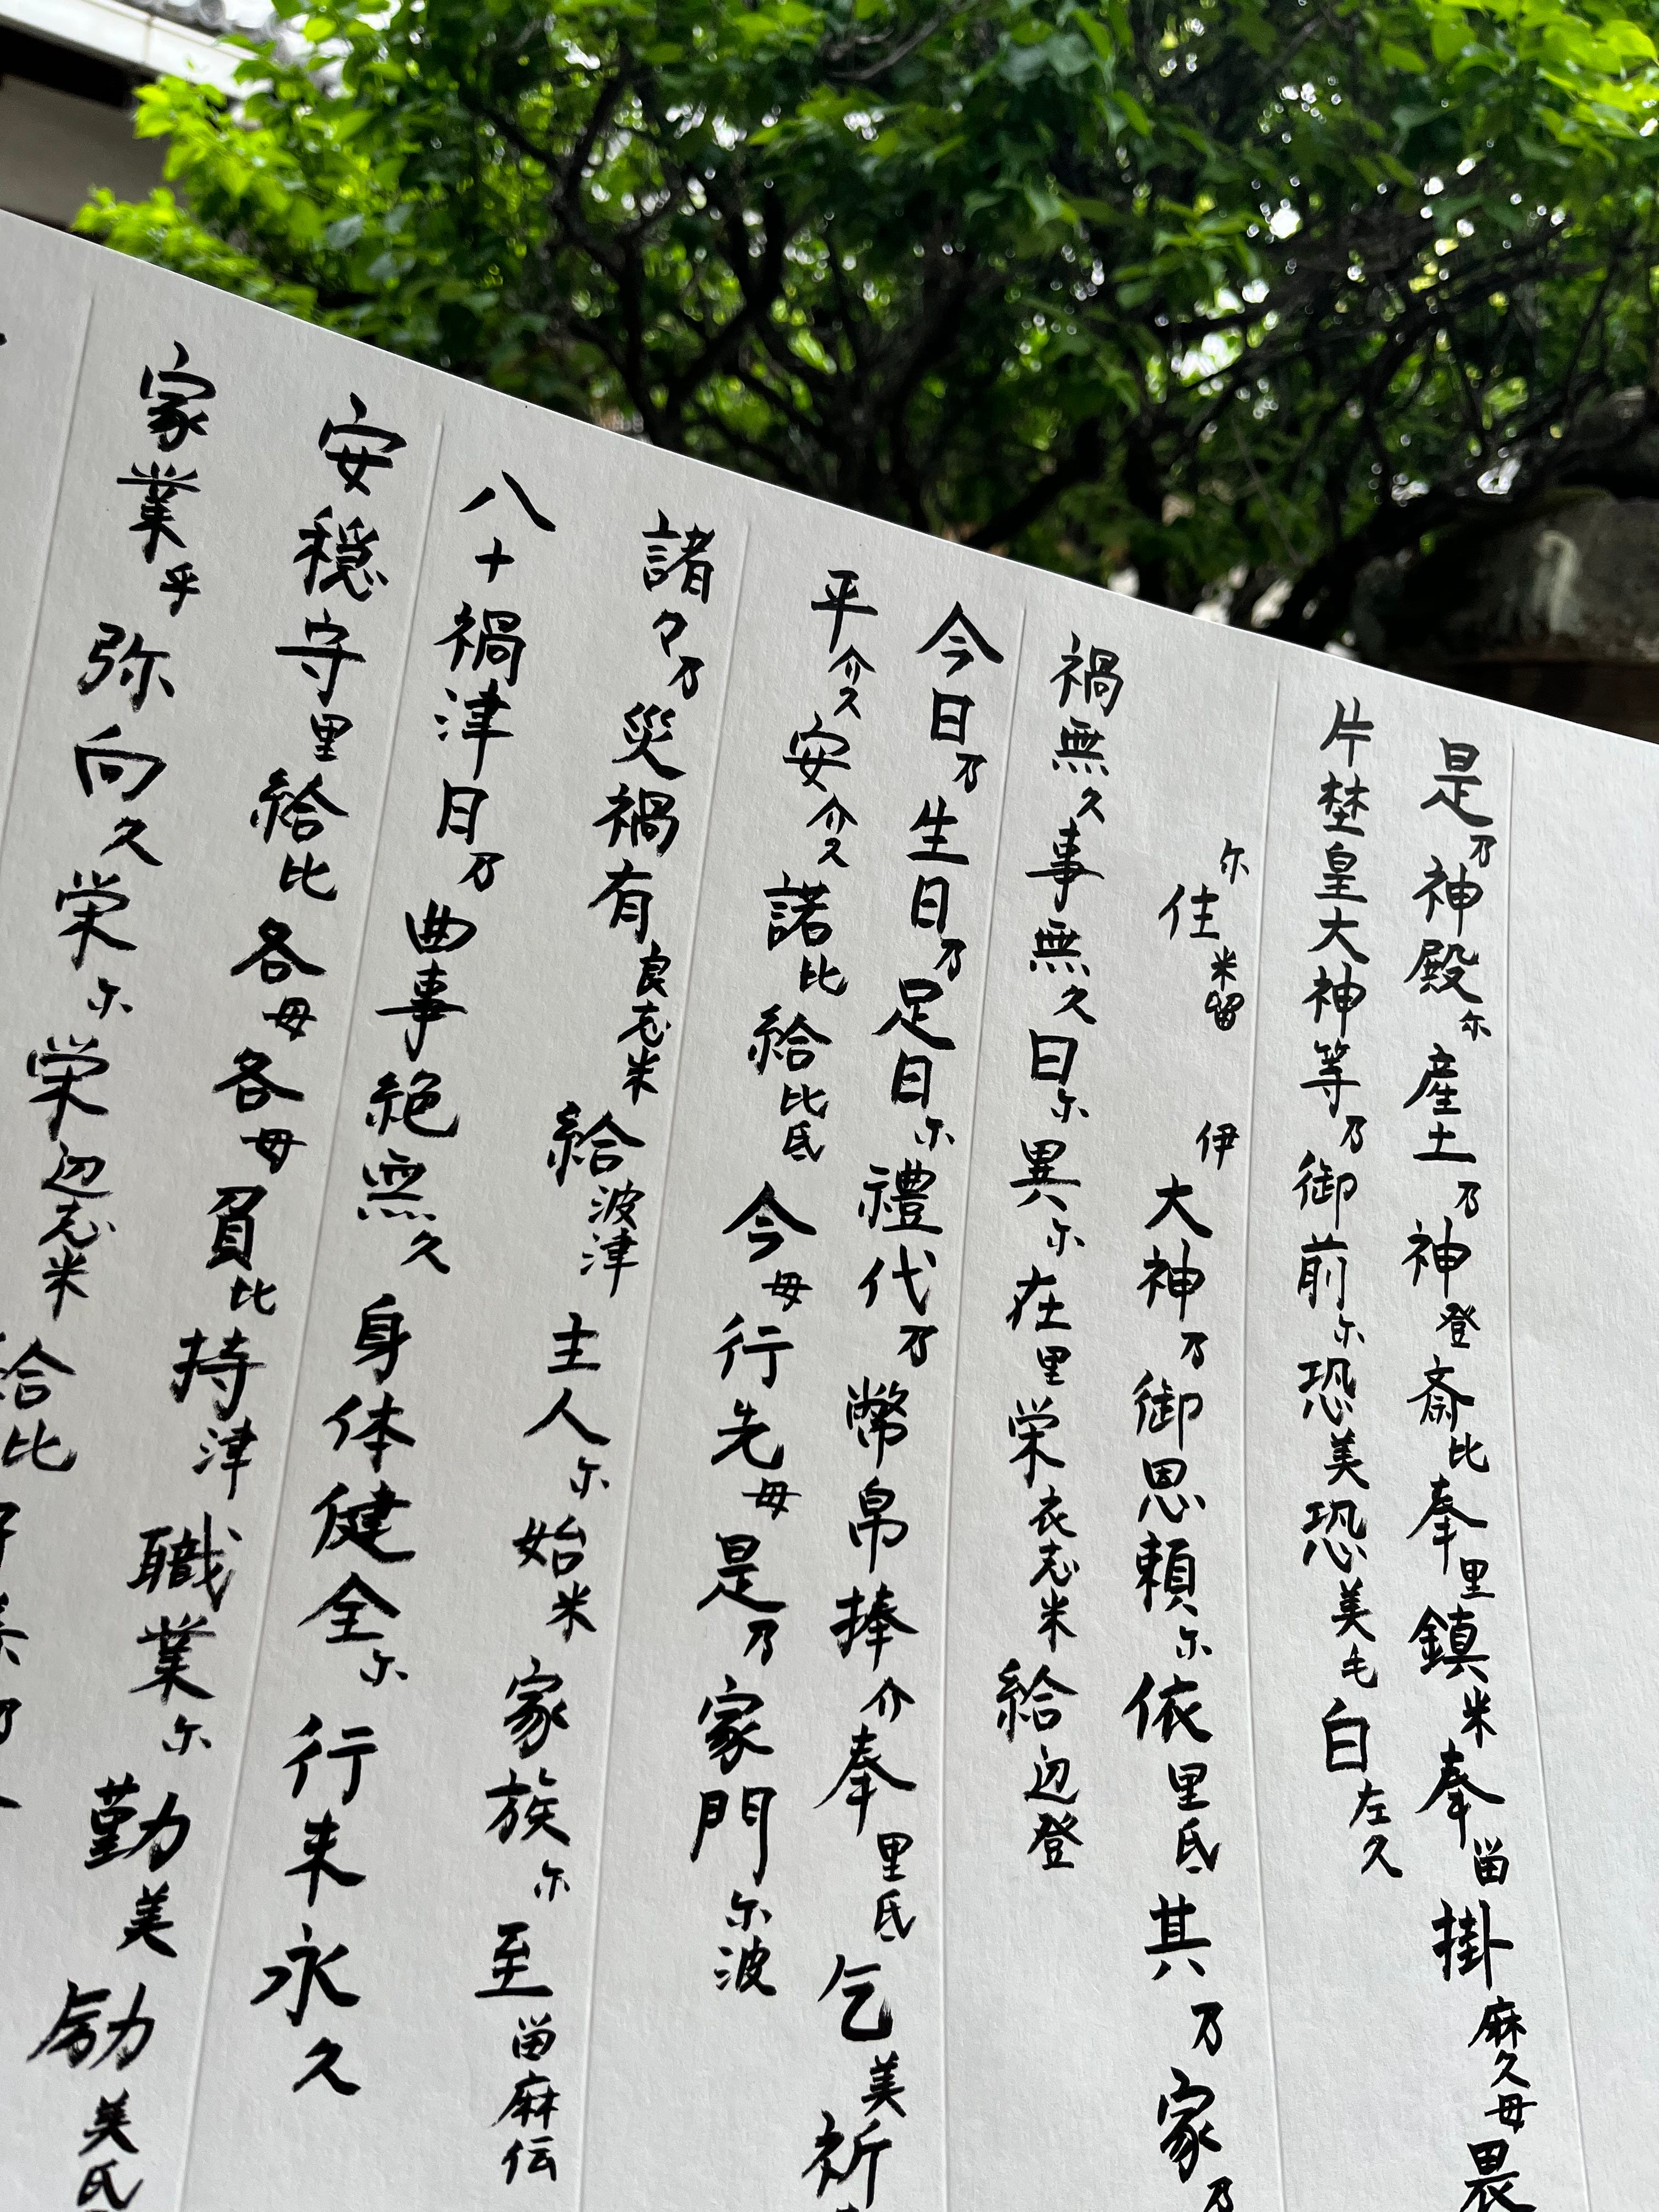 是乃神殿尓産土乃神登斎比奉里鎮米奉留掛麻久母畏
片埜皇大神等乃御前尓恐美恐美毛白左久
尓住米留 伊 大神乃御恩頼尓依里氐其乃家乃
禍無久事無久日尓異尓在里栄衣志米給辺登
今日乃生日乃足日尓禮代乃幣帛捧介奉里氐乞美祈
平介久安介久諾比給比氐今母行先母是乃家門尓波
諸々乃災禍有良志米給波津主人尓始米家族尓至留麻伝
八十禍津日乃曲事絶無久身体健全尓行末永久
安穏守里給比各母各母負比持津職業尓勤美励美氐
家業乎弥向久栄尓栄辺志米給比